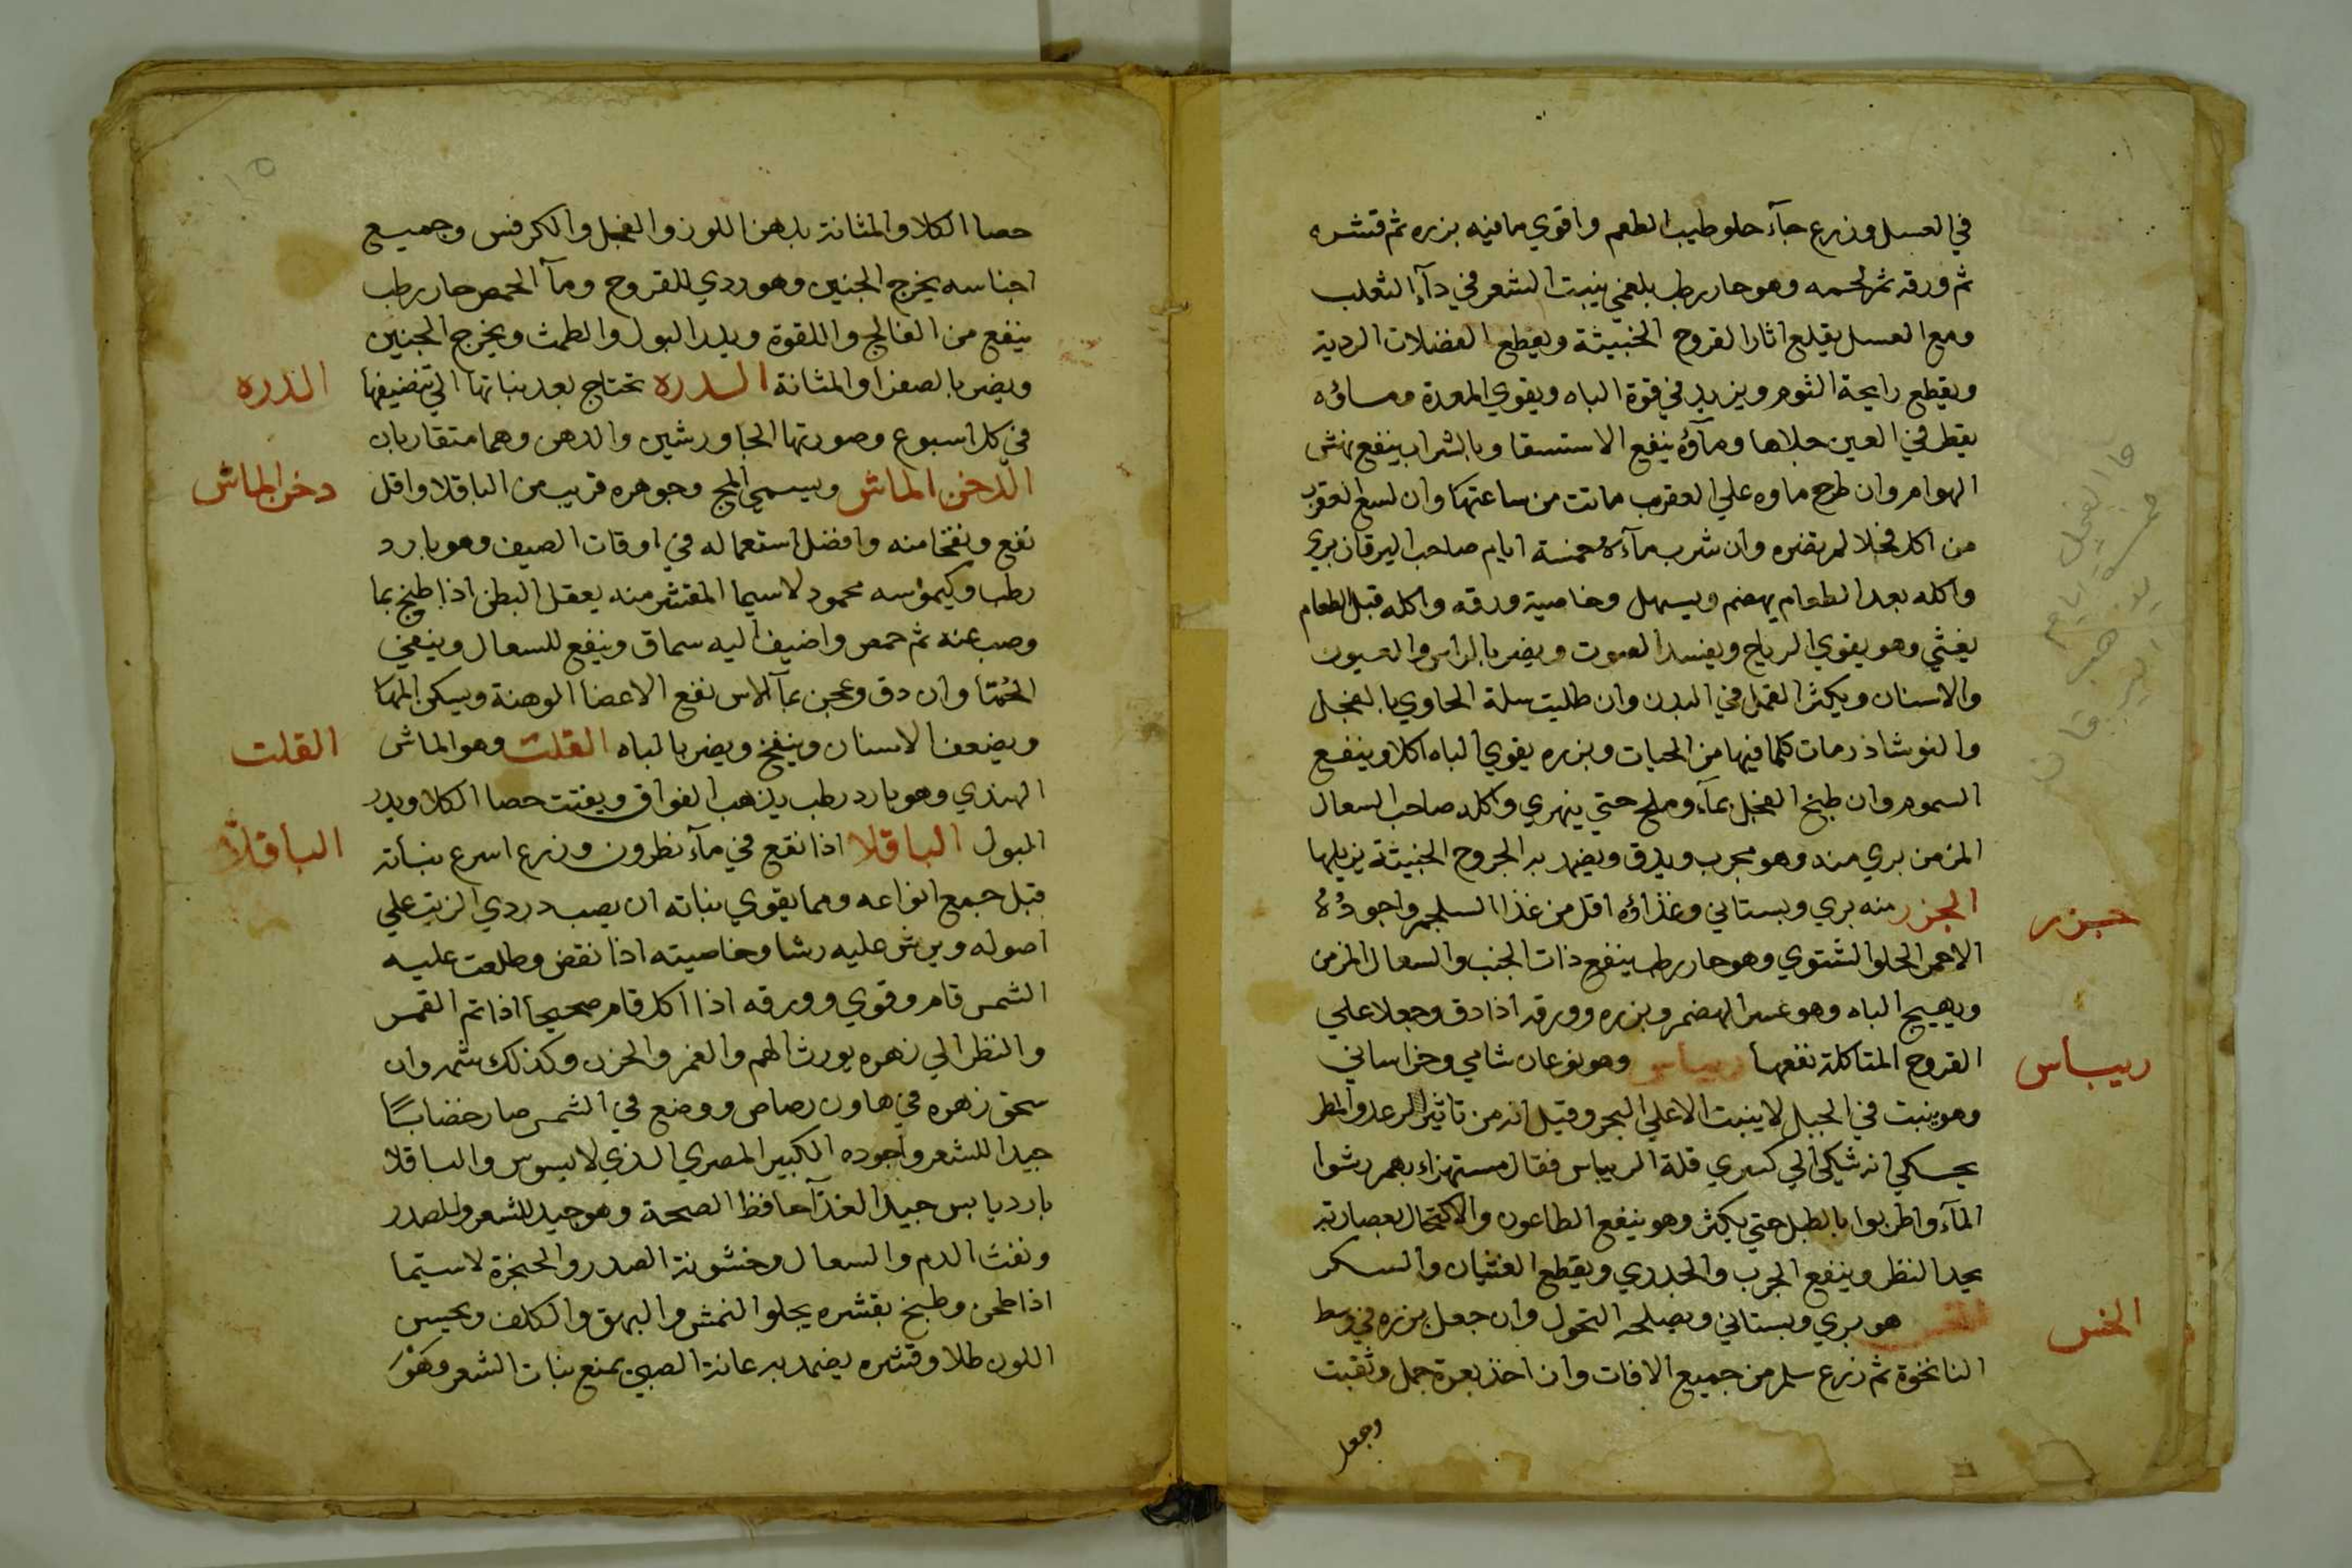 في العسل وزرع جآء حلو طيب الطعم واقوي مافيه بزره ثم قشره
ثم ورقه ثم لحمه وهو حار رطب بلغمي ينبت الشعر في دآء الثعلب
ومع العسل يقلع اثار القروح الخبيثة ويقطع الفضلات الردية
ويقطع رايحة الثوم ويزيد في قوة الباه ويقوي المعدة وماؤه
يقطر في العين جلاها ومآؤه ينفع الاستسقا وبالشراب ينفع نهش
الهوام وان طرح ماوه علي العقرب ماتت من ساعتها وان لسع العقرب
من اكل فجلا لم يضره وان شرب مآءه خمسة ايام صاحب اليرقان بري
واكله بعد الطعام يهضم ويسهل وخاصية ورقه واكله قبل الطعام
يغثي وهو يقوي الرياح ويفسد الصوت ويضر بالراس والعيون
والاسنان ويكثر القمل في البدن وان طليت سلة الحاوي بالفجل
والنوشاذر مات كلما فيها من الحيات وبزره يقوي الباه اكلا وينفع
السموم وان طبخ الفجل بمآء وملح حتي ينهري واكله صاحب السعال
المزمن بري منه وهو مجرب ويدق ويضمد به الجروح الخبيثة يزيلها
الجزر منه بري وبستاني وغذاؤه اقل من غذا السلجم واجوده
الاحمر الحلو الشتوي وهو حار رطب ينفع ذات الجنب والسعال المزمن
ويهيج الباه وهو عسر الهضم وبزره وورقه اذا دق وجعلا علي
القروح المتاكلة نفعها ريباس وهو نوعان شامي وخراساني
وهو ينبت في الجبل لا ينبت الا علي البحر وقيل انه من تاثير الرعد والمطر
يحكي انه شكي الي كسري قلة الريباس فقال مستهزاء بهم رشوا
المآء واطربوا بالطبل حتي يكثر وهو ينفع الطاعون والاكتحال بعصارته
يحد النظر وينفع الجرب والجدري ويقطع الغثيان والسكر
الخس هو بري وبستاني ويصلحه التحول وان جعل بزره في وسط
النانخوة ثم زرع سلم من جميع الافات وان اخذ بعرة جمل وثقبت
وجعل
جزر
ريباس
الخس
ما الفجل
خمسة ايام
اليرقان
١٥
حصا الكلا والمثانة بدهن اللوز والفجل والكرفس وجميع
اجناسه يخرج الجنين وهو ردي للقروح ومآ الحمص حار رطب
ينفع من الفالج واللقوة ويدر البول والطمث ويخرج الجنين
ويضر بالصفرا والمثانة الدره تحتاج بعد نباتها الي تنضيفها
في كل اسبوع وصورتها الجاورشين والدهن وهما متقاربان
الدخن الماش ويسمي المج وجوهره قريب من الباقلا واقل
نفع ونفخا منه وافضل استعماله في اوقات الصيف وهو بارد
رطب وكيموسه محمود لاسيما المقشر منه يعقل البطن اذا طبخ بما
وصب عنه ثم حمص واضيف اليه سماق وينفع للسعال وينفي
الحُمّا وان دق وعجن بمآ الاس نفع الاعضا الوهنة ويسكن المها
ويضعف الاسنان وينفخ ويضر بالباه القلت وهو الماش
الهندي وهو بارد رطب يذهب الفواق ويفتت حصا الكلا ويدر
البول الباقلا اذا نقع في مآء نطرون وزرع اسرع نباته
قبل جميع انواعه ومما يقوي نباته ان يصب دردي الزيت علي
اصوله ويرش عليه رشا وخاصيته اذا نقض وطلعت عليه
الشمس قام وقوي وورقه اذا اكل قام صحيحا اذا تم القمر
والنظر الي زهره يورث الهم والغم والحزن وكذلك شمه وان
سحق زهره في هاون رصاص ووضع في الشمس صار خضابًا
جيدا للشعر واجوده الكبير المصري الذي لا يسوس والباقلا
بارد يابس جيد الغذآ حافظ الصحة وهو جيد للشعر والصدر
ونفث الدم والسعال وخشونة الصدر والحنجرة لاسيما
اذا طحن وطبخ بقشره يجلو النمش والبهق والكلف ويحسن
اللون طلا وقشره يضمد به عانة الصبي يمنع نبات الشعر وهو
الدره
دخن الماش
القلت
الباقلا